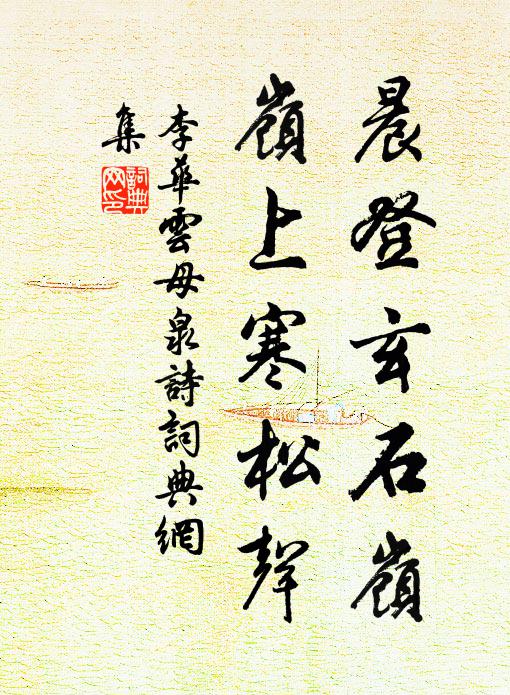 晨登玄石嶺
嶺上寒松聲
李華雲母泉詩詞典網
集
詞典网印